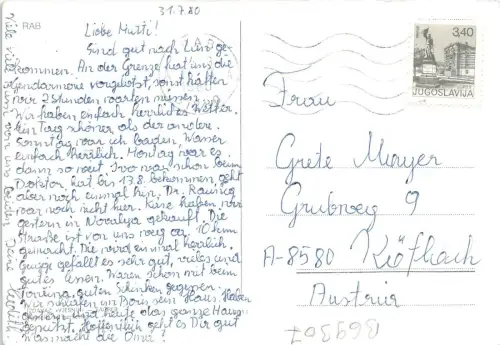 RAB
31.7.80
Liebe Mutti!
Sind gut nach hier ge-
kommen. An der Grenze hat uns die
Gendarmerie vorgelotst, sonst hätten
wir 2 Stunden warten müssen.
Wir haben einfach herrliches Wetter.
Ein Tag schöner als der andere.
Sonntag war ich baden, Wasser
einfach herrlich. Montag war es
dann so weit. Ivo war schon beim
Doktor, hat bis 13.8. bekommen, geht
aber noch einmal hin, Dr.
war noch nicht hier. Käse haben wir
gestern in Novalja gekauft. Die
Straße ist von uns weg ca. 10 km
gemacht. Die wird einmal herrlich.
gefällt es sehr gut, vieles und
gutes Essen. Waren schon mit beim
guten Schinken gegessen.
Wir schlafen in Boris sein Haus. Haben
gestern und heute das ganze Haus
geputzt. Hoffentlich geht es Dir gut
was macht die Oma?
Viele von uns beiden Deine
3,40
JUGOSLAVIJA
Frau
Grete Mayer
Grubweg 9
A-8580 Köflach
Austria
869307